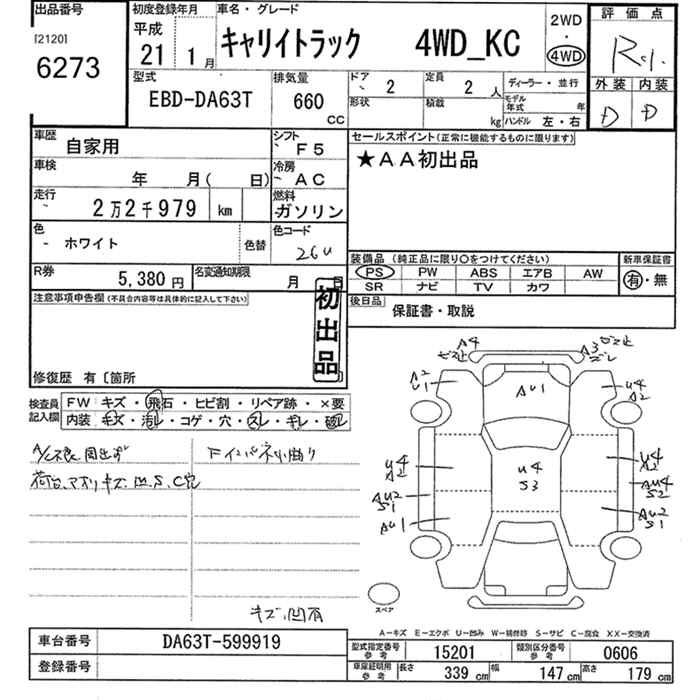 出品番号
[2120]
6273
初度登録年月
平成
21年 1月
車名・グレード
キャリイトラック 4WD_KC
2WD
・
4WD
評価点
外装 内装
D D
型式
EBD-DA63T
排気量
660
cc
ドア 2
定員 2人
ディーラー・並行
形状
積載 kg
モデル年式 年
ハンドル 左・右
車歴
自家用
シフト
F5
セールスポイント(正常に機能するものに限ります)
★AA初出品
車検
年 月( 日)
冷房
AC
走行
2万2千979 km
燃料
ガソリン
色
ホワイト
色替
色コード
26U
装備品 (純正品に限り○をつけてください)
PS PW ABS エアB AW
SR ナビ TV カワ
新車保証書
有・無
R券
5,380円
名変通知期限
月 日
後日品
保証書・取説
注意事項申告欄(不具合内容等は具体的に記入して下さい)
初出品
修復歴 有〔箇所
検査員
記入欄
FW キズ・飛石・ヒビ割・リペア跡・×要
内装 キズ・汚レ・コゲ・穴・スレ・ギレ・破レ
キズ、凹有
A4
A3
A2
U1
AU1
U4
A2
U4
A2
U4
S3
U4
A2
AU2
S1
AU4
S2
AU1
AU2
S1
スペア
A-キズ E-エクボ U-凹み W-補修跡 S-サビ C-腐食 XX-交換済
車台番号
DA63T-599919
登録番号
型式指定番号
参考
15201
類別区分番号
参考
0606
車庫証明用
参考
長さ 339 cm
幅 147 cm
高さ 179 cm